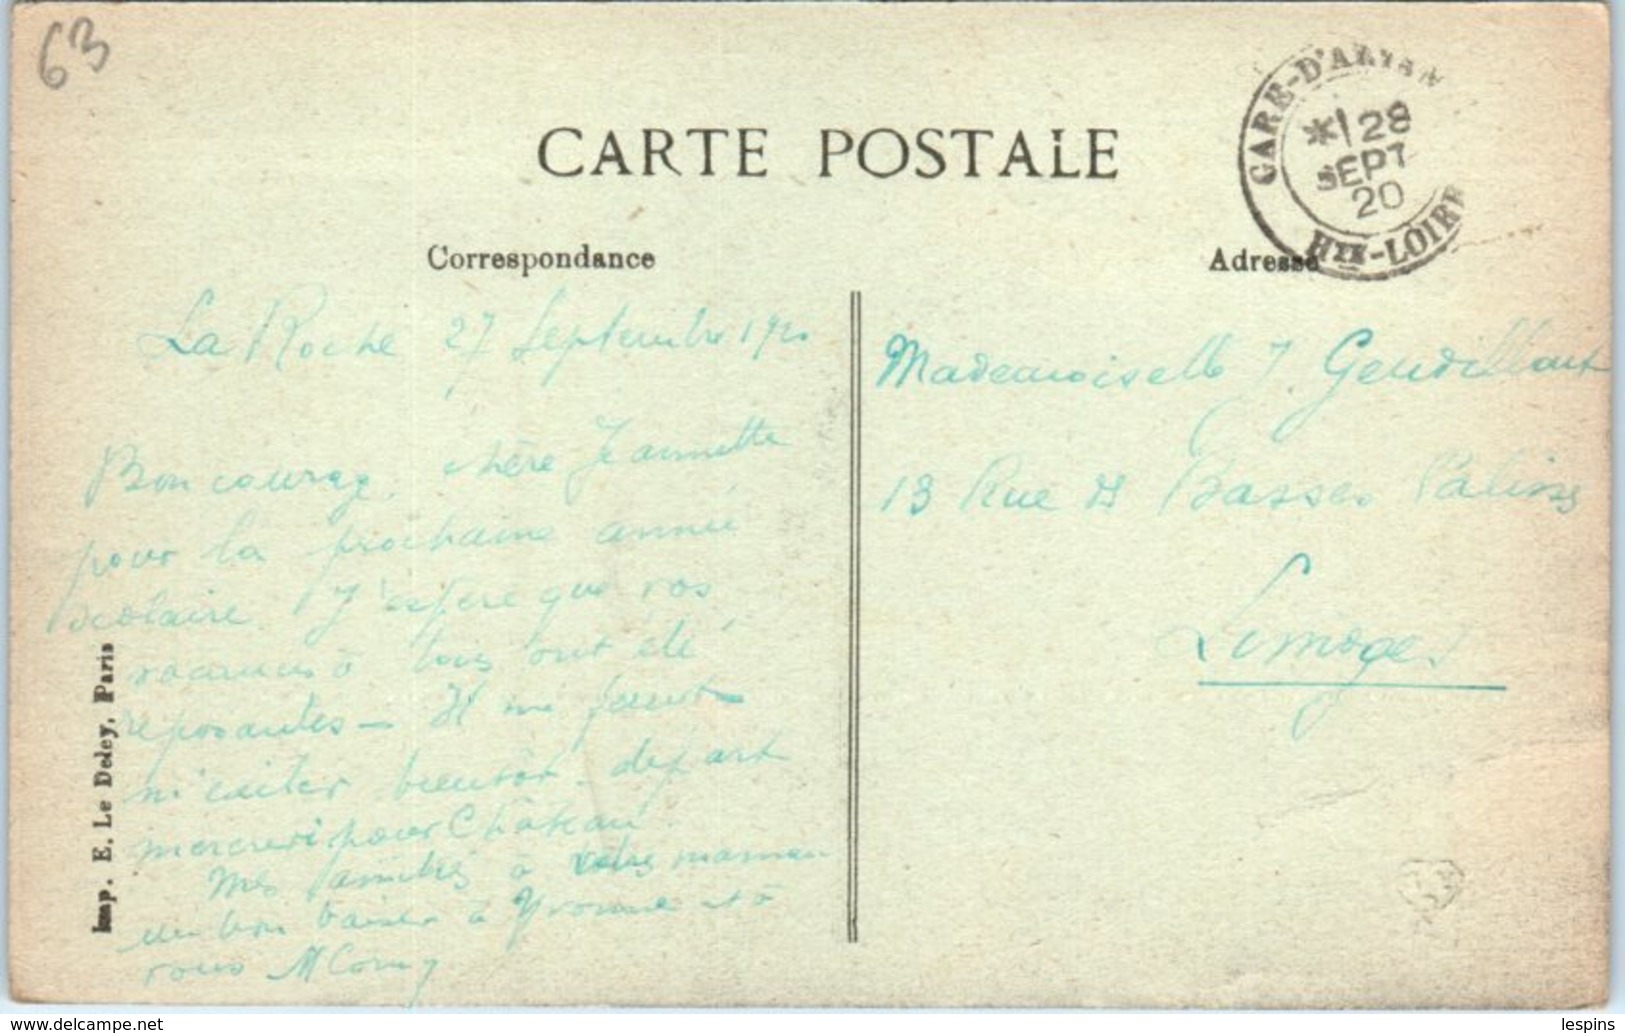 63
CARTE POSTALE
GARE-D'ARVAN
* 28
SEPT
20
HTE-LOIRE
Correspondance
Adresse
La Roche 27 Septembre 1920
Bon courage, chère Jeannette
pour la prochaine année
scolaire. J'espère que vos
vacances à tous ont été
reposantes – Il me faut
m'éviter bientôt. départ
mercredi pour Château.
Mes amitiés à votre maman
un bon baiser à Yvonne et à
vous M
Mademoiselle J. Gendillaut
13 Rue des Basses Palisses
Limoges
Imp. E. Le Deley, Paris
lespins
© www.delcampe.net